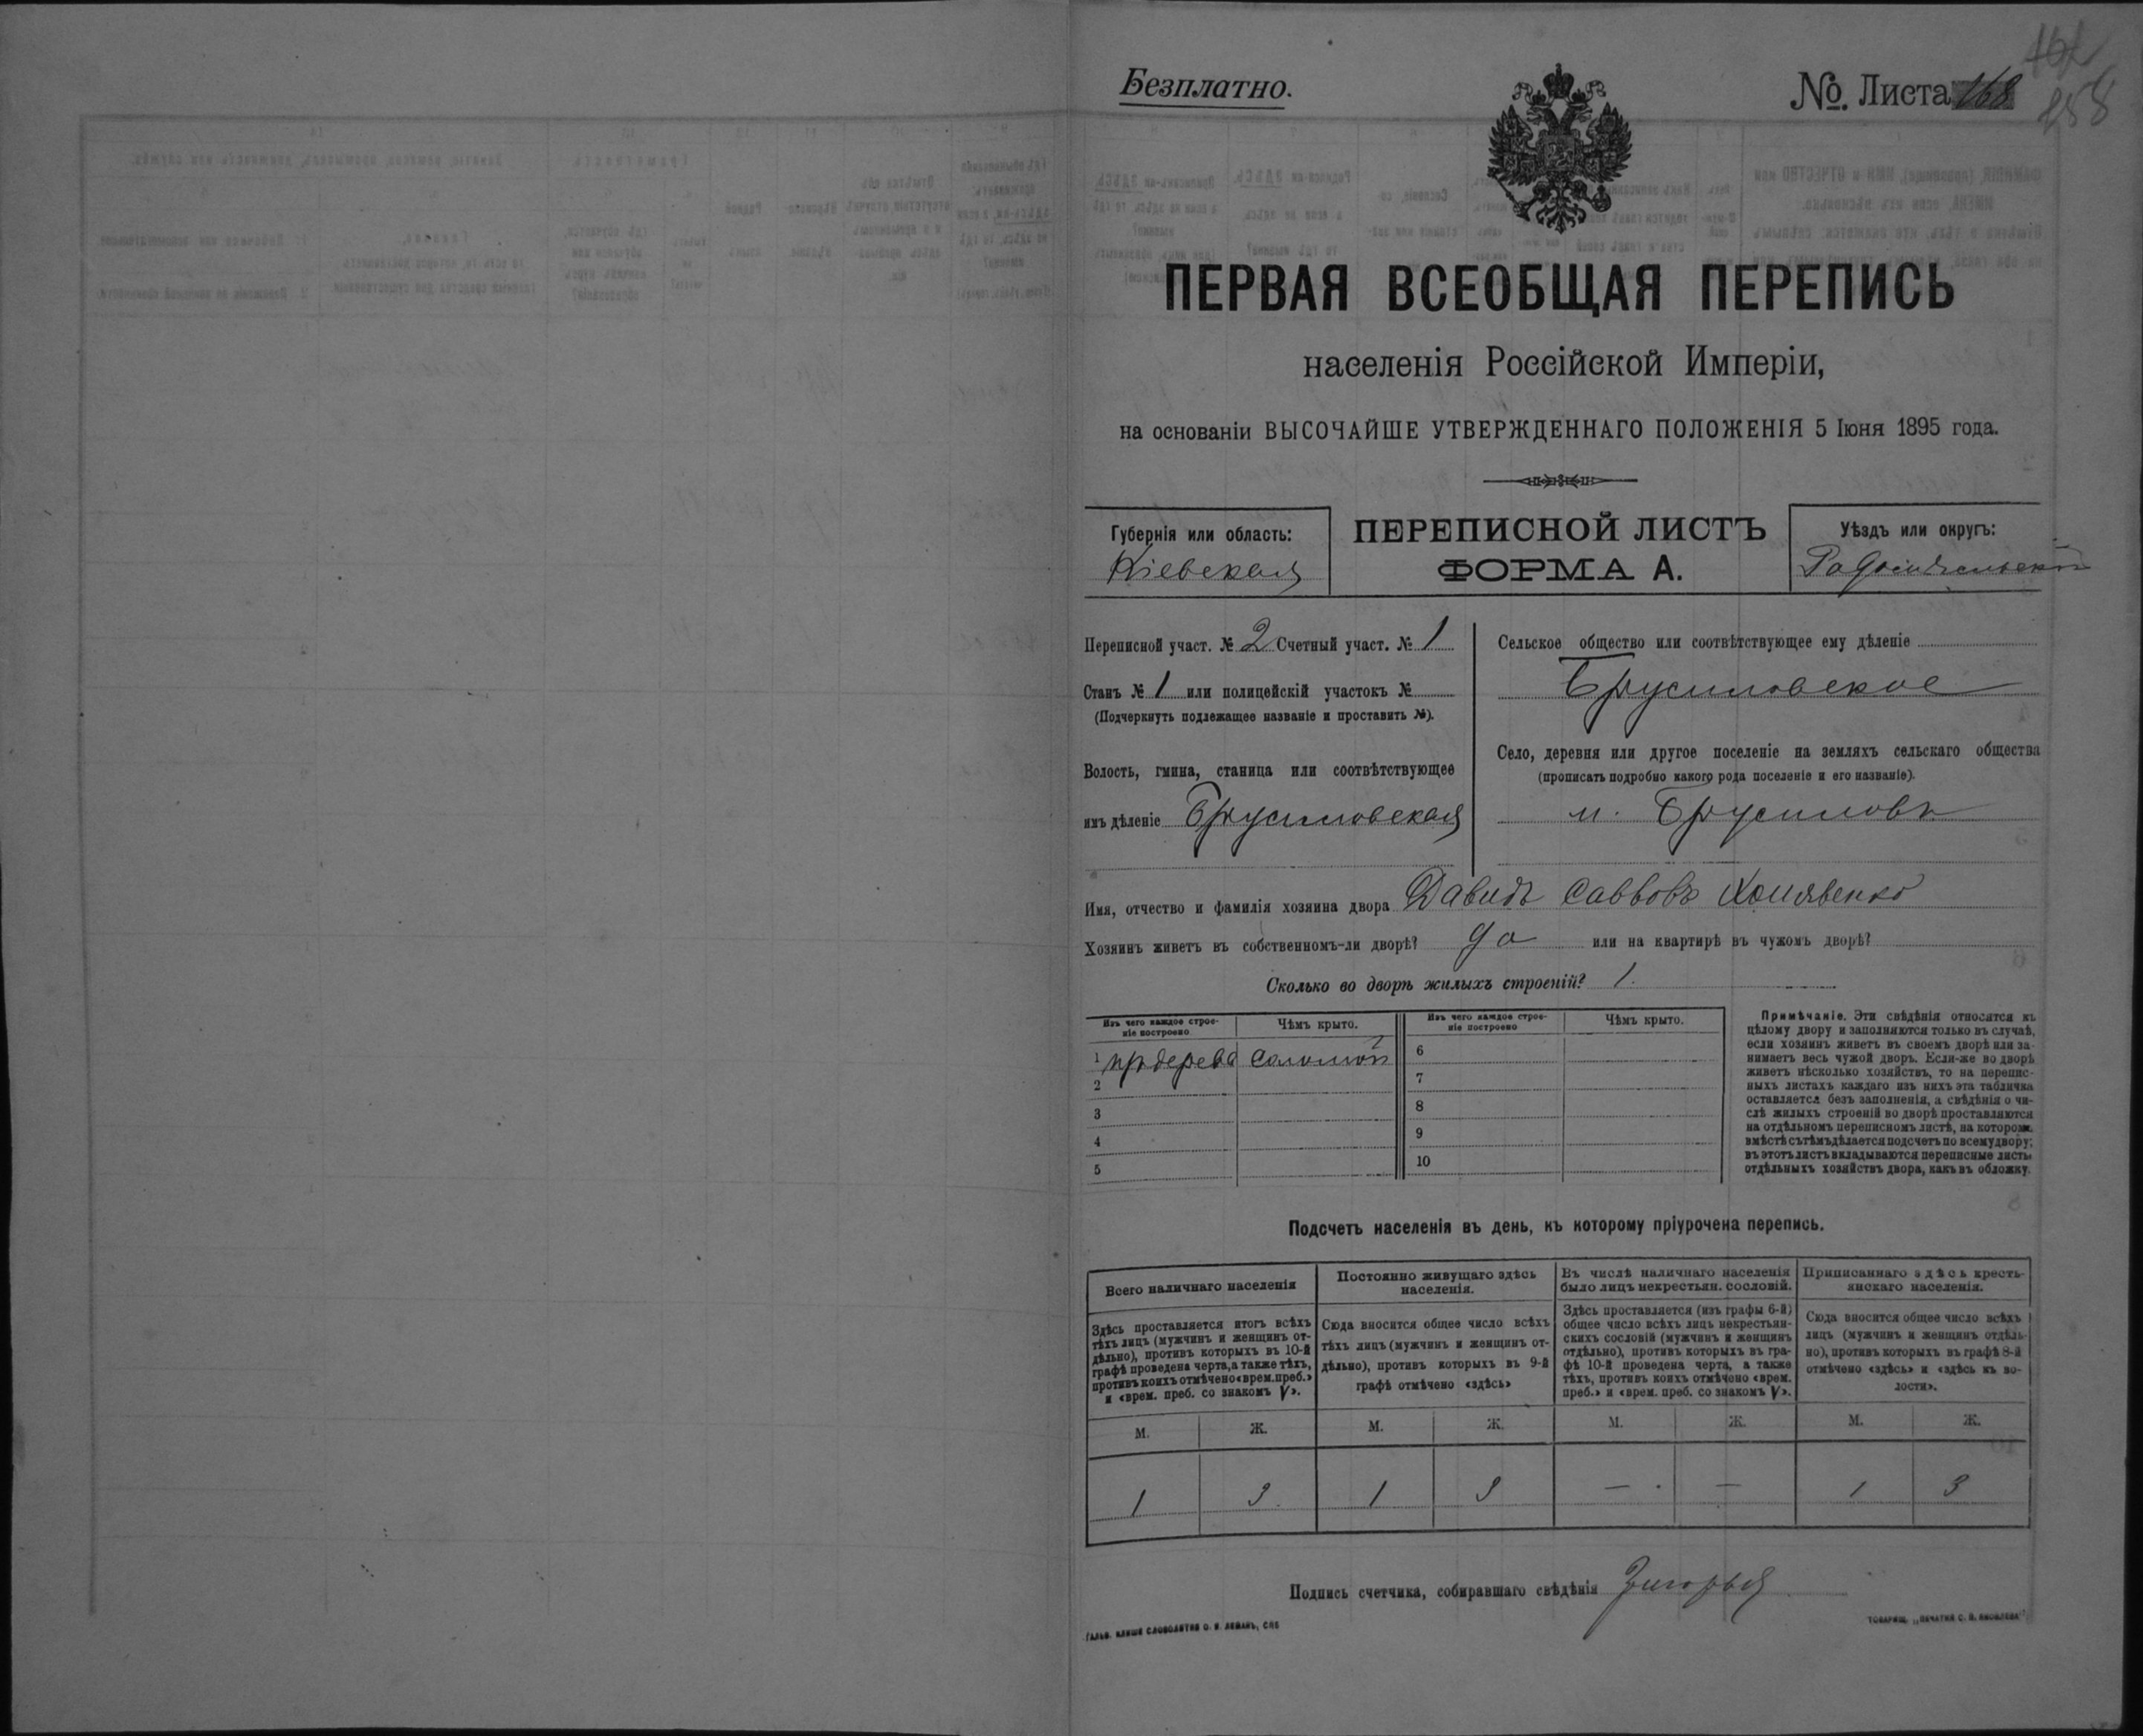 Безплатно.
№ Листа 168
258
ПЕРВАЯ ВСЕОБЩАЯ ПЕРЕПИСЬ
населенія Россійской Имперіи,
на основаніи ВЫСОЧАЙШЕ УТВЕРЖДЕННАГО ПОЛОЖЕНІЯ 5 Іюня 1895 года.
Губернія или область:
Кіевская
ПЕРЕПИСНОЙ ЛИСТЪ
ФОРМА А.
Уѣздъ или округъ:
Радомысльскій
Переписной участ. № 2 Счетный участ. № 1
Станъ № 1 или полицейскій участокъ №
(Подчеркнуть подлежащее названіе и проставить №).
Волость, гмина, станица или соотвѣтствующее
имъ дѣленіе Брусиловская
Сельское общество или соотвѣтствующее ему дѣленіе
Брусиловское
Село, деревня или другое поселеніе на земляхъ сельскаго общества
(прописать подробно какого рода поселеніе и его названіе).
м. Брусиловъ
Имя, отчество и фамилія хозяина двора Давидъ Саввовъ
Хозяинъ живетъ въ собственномъ-ли дворѣ? да или на квартирѣ въ чужомъ дворѣ?
Сколько во дворѣ жилыхъ строеній? 1.
Изъ чего каждое строе-
ніе построено
Чѣмъ крыто.
Изъ чего каждое строе-
ніе построено
Чѣмъ крыто.
1 изъ дерева соломой
2
3
4
5
6
7
8
9
10
Примѣчаніе. Эти свѣдѣнія относятся къ
цѣлому двору и заполняются только въ случаѣ,
если хозяинъ живетъ въ своемъ дворѣ или за-
нимаетъ весь чужой дворъ. Если-же во дворѣ
живетъ нѣсколько хозяйствъ, то на перепис-
ныхъ листахъ каждаго изъ нихъ эта табличка
оставляется безъ заполненія, а свѣдѣнія о чи-
слѣ жилыхъ строеній во дворѣ проставляются
на отдѣльномъ переписномъ листѣ, на которомъ
вмѣстѣ съ тѣмъ дѣлается подсчетъ по всему двору;
въ этотъ листъ вкладываются переписные листы
отдѣльныхъ хозяйствъ двора, какъ въ обложку.
Подсчетъ населенія въ день, къ которому пріурочена перепись.
Всего наличнаго населенія
Здѣсь проставляется итогъ всѣхъ
тѣхъ лицъ (мужчинъ и женщинъ от-
дѣльно), противъ которыхъ въ 10-й
графѣ проведена черта, а также тѣхъ,
противъ коихъ отмѣчено «врем. преб.»
и «врем. преб. со знакомъ V».
Постоянно живущаго здѣсь
населенія.
Сюда вносится общее число всѣхъ
тѣхъ лицъ (мужчинъ и женщинъ от-
дѣльно), противъ которыхъ въ 9-й
графѣ отмѣчено «здѣсь»
Въ числѣ наличнаго населенія
было лицъ некрестьян. сословій.
Здѣсь проставляется (изъ графы 6-й)
общее число всѣхъ лицъ некрестьян-
скихъ сословій (мужчинъ и женщинъ
отдѣльно), противъ которыхъ въ гра-
фѣ 10-й проведена черта, а также
тѣхъ, противъ коихъ отмѣчено «врем.
преб.» и «врем. преб. со знакомъ V».
Приписаннаго здѣсь кресть-
янскаго населенія.
Сюда вносится общее число всѣхъ
лицъ (мужчинъ и женщинъ отдѣль-
но), противъ которыхъ въ графѣ 8-й
отмѣчено «здѣсь» и «здѣсь къ во-
лости».
М. Ж. М. Ж. М. Ж. М. Ж.
1 3 1 3 — — 1 3
Подпись счетчика, собиравшаго свѣдѣнія
ГАЛЬВ. КЛИШЕ СЛОВОЛИТНИ О. И. ЛЕМАНЪ, СПБ
ТОВАРИЩ. „ПЕЧАТНЯ С. П. ЯКОВЛЕВА"